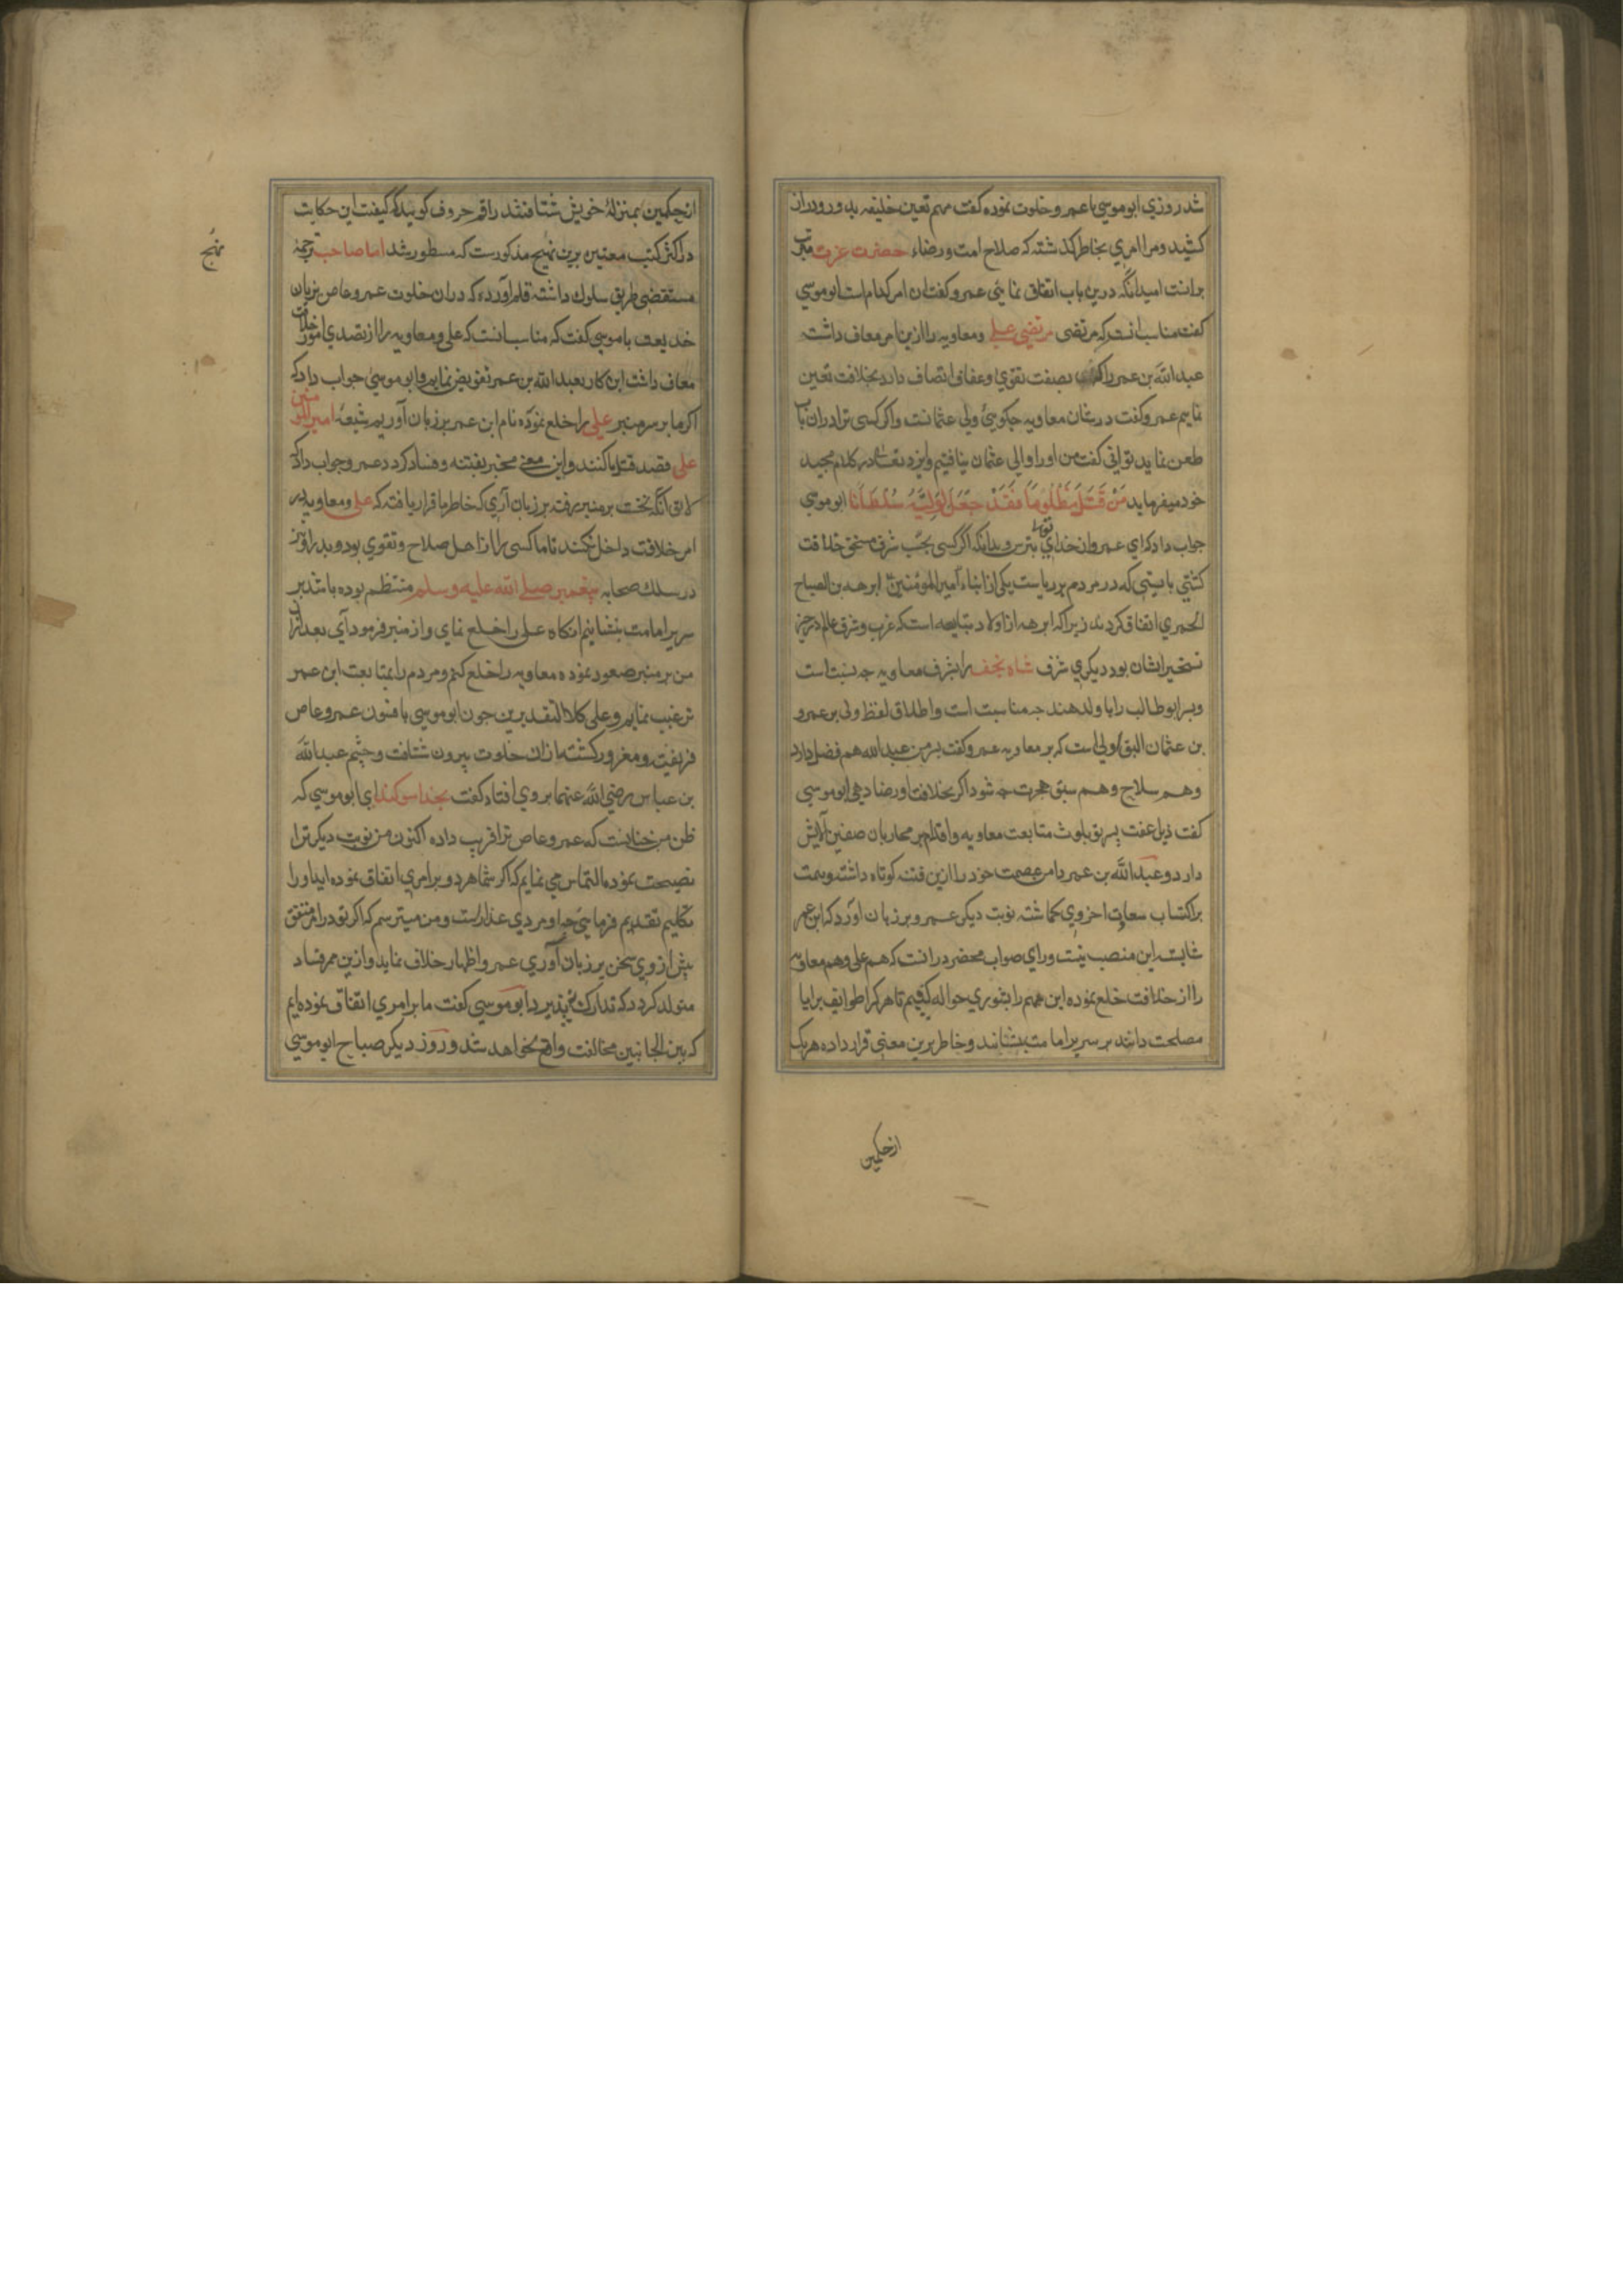 شد روزی ابو موسی با عمرو خلوت نموده گفت مهم تعین خلیفه بدور و دراز
کشید و مرا امری بخاطر گذشته که صلاح امت و رضاء حضرت عزت مترتب
برانست امید انکه درین باب اتفاق نمایی عمرو گفت ان امر کدام است ابو موسی
گفت مناسب انست که مرتضی مرتضی علی و معاویه را ازین امر معاف داشته
عبدالله بن عمر را که بصفت تقوی و عفاف اتصاف دارد بخلافت تعین
نماییم عمرو گفت در شان معاویه چکویی ولی عثمانست و اگر کسی ترا دران باب
طعن نماید توانی گفت من او را والی عثمان یافتیم و ایزد تعالی در کلام مجید
خود میفرماید مَنْ قَتَلَ مَظْلُومًا فَقَدْ جَعَلَ لِوَلِیِّهِ سُلْطَانًا ابو موسی
جواب داد که ای عمرو از خدای تعالی بترس و بدانکه اگر کسی بحسب شرف مستحق خلافت
گشتی بایستی که مردم بر ریاست یکی از ابناء امیر المؤمنین ابرهه بن الصباح
الحمیری اتفاق کردند زیرا که ابرهه از اولاد تبابعه است که غرب و شرق عالم در حیز
تسخیر ایشان بود دیکری شرف شاه نجف را بشرف معاویه چه نسبت است
و پسر ابو طالب را با ولد هند چه مناسبت است و اطلاق لفظ ولی بر عمرو
بن عثمان الیق اولی است که بر معاویه عمرو گفت پسر من عبدالله هم فضل دارد
و هم صلاح و هم سبق هجرت چه شود اگر بخلافت او رضا دهی ابو موسی
گفت ذیل عفت پسر تو بلوث متابعت معاویه و اقدام بر محاربان صفین آلایش
دارد و عبدالله بن عمر دامن عصمت خود را ازین فتنه کوتاه داشته و همت
بر اکتساب سعادت اخروی کماشته نوبت دیگر عمرو بر زبان اورد که ابن عمر
شایسته این منصب نیست و رای صواب محضر در انست که هم علی و هم معاویه
را از خلافت خلع نموده این مهم را بشوری حواله کنیم تا هر کرا طوایف برایا
مصلحت دانند بر سریر امامت بنشانند و خاطر برین معنی قرار داده هر یک
ازحکمین
ازحکمین بمنزله خویش شتافتند راقم حروف گوید که کیفیت این حکایت
در اکثر کتب معتبر برین نهج مذکورست که مسطور شد اما صاحب ترجمه
مستقصی طریق سلوک داشته قلم آورده که دران خلوت عمرو عاص بزبان
خدیعت با موسی گفت که مناسب انست که علی و معاویه را از تصدی امور خلافت
معاف داشت این کار بعبدالله بن عمر تفویض نماییم و ابو موسی جواب داد که
اگر ما بر سر منبر علی را خلع نموده نام ابن عمر بر زبان آوریم شیعه امیر المومنین
علی قصد قتل ما کنند و این معنی منجر بفتنه و فساد کردد عمرو جواب داد که
لایق انکه نخست بر منبر رفته بر زبان آری که خاطر ما قرار یافته که علی و معاویه در
امر خلافت داخل نکنند تا ما کسی را از اهل صلاح و تقوی بود و پدر او نیز
در سلک صحابه پیغمبر صلی الله علیه وسلم منتظم بوده باشد بر
سریر امامت بنشانیم انکاه علی را خلع نمای و از منبر فرود آی بعد ازان
من بر منبر صعود نموده معاویه را خلع کنم و مردم را بمتابعت ابن عمر
ترغیب نمایم و علی کلا التقدیرین چون ابو موسی بافسون عمرو عاص
فریفته و مغرور گشته از ان خلوت بیرون شتافت و چشم عبدالله
بن عباس رضی الله عنهما بروی افتاد گفت بخدا سوکند ای ابو موسی که
ظن من چنانست که عمرو عاص ترا فریب داده اکنون من نوبت دیکر ترا
نصیحت نموده التماس می نمایم که اگر شما هر دو بر امری اتفاق نموده اید او را
بتکلیم تقدیم فرمایی چه او مردی غدارست و من میترسم که اگر تو در امر متفق
پیش از وی سخن بر زبان آوری عمرو اظهار خلاف نماید و ازین ممر فساد
متولد کردد که تدارک نپذیرد ابو موسی گفت ما بر امری اتفاق نموده ایم
که بین الجانبین مخالفت واقع نخواهد شد و روز دیکر صباح ابو موسی
نهج